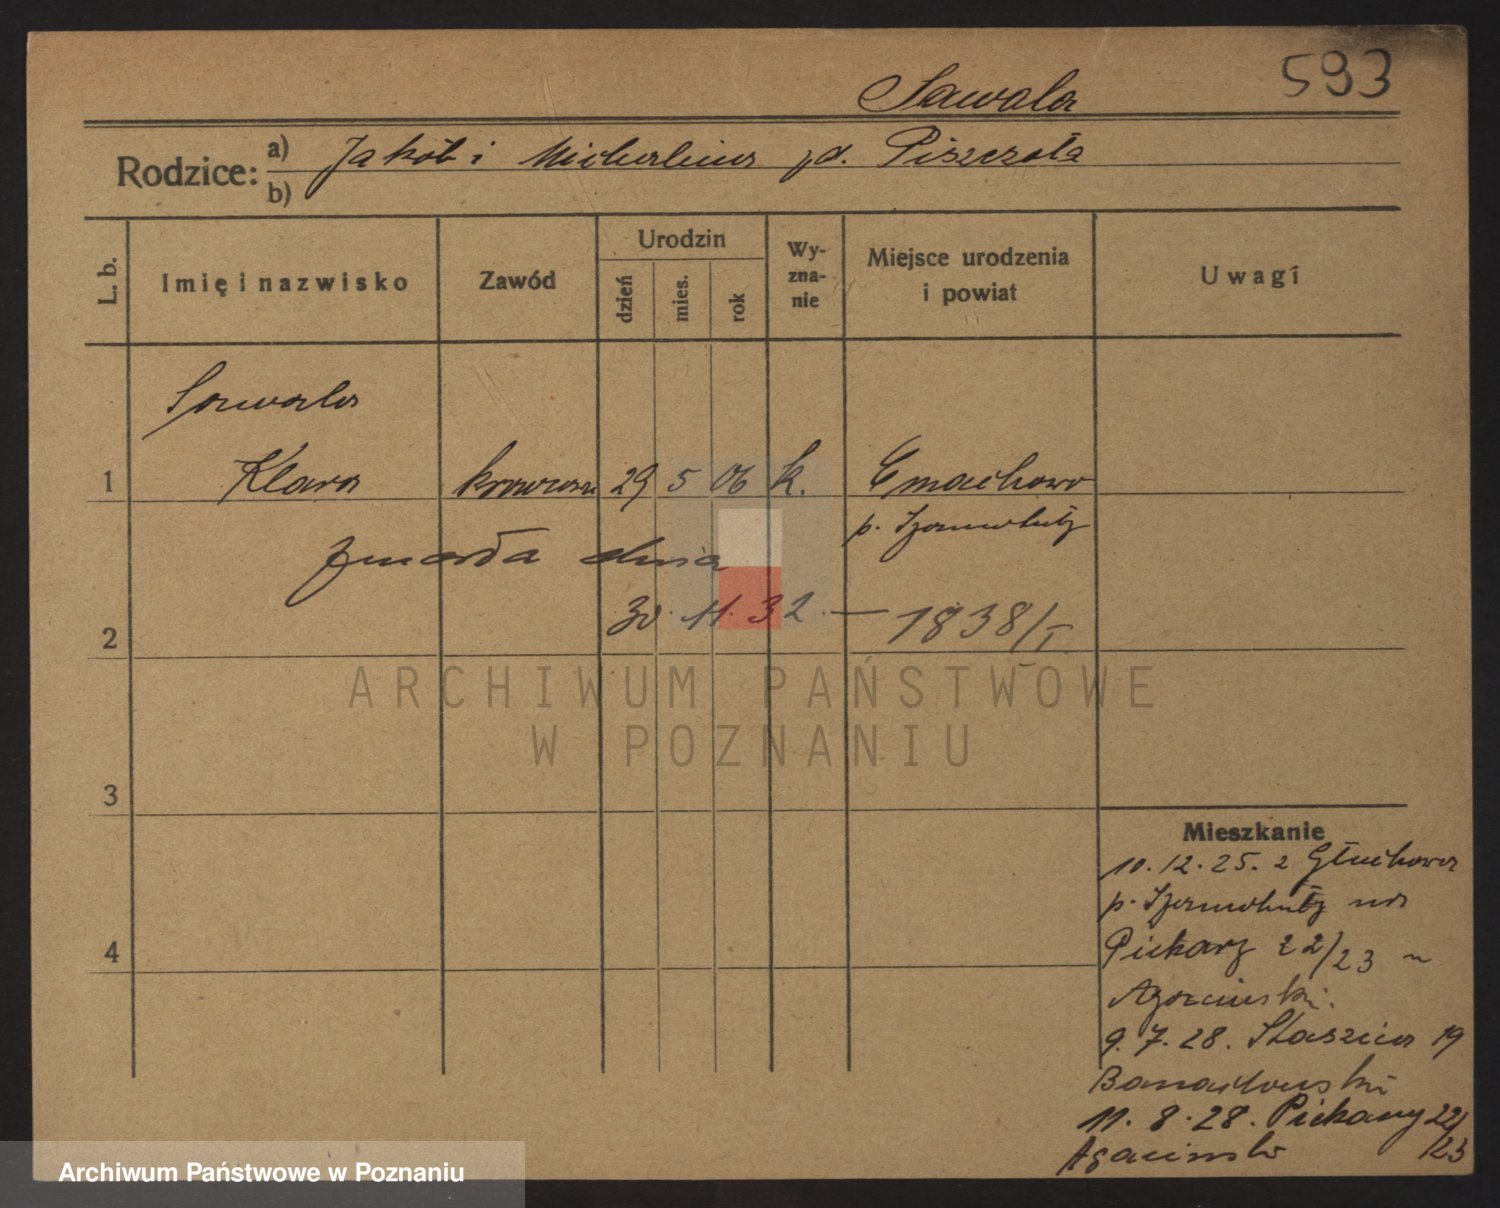 593
Sawala
Rodzice: a) Jakób i Michalina zd. Piszczoła
b)
L. b. Imię i nazwisko Zawód Urodzin dzień mies. rok Wyznanie Miejsce urodzenia i powiat Uwagi
Sawala
1 Klara krawcowa 29 5 06 k. Gmachowo
p. Szamotuły
zmarła dnia
2 30. 11. 32. — 1838/I
ARCHIWUM PAŃSTWOWE
W POZNANIU
3
Mieszkanie
10.12.25. z Głuchowa
p. Szamotuły na
4 Piekary 22/23 u
Agaciński.
9.7.28. Staszica 19
11.8.28. Piekary 22/23
Archiwum Państwowe w Poznaniu